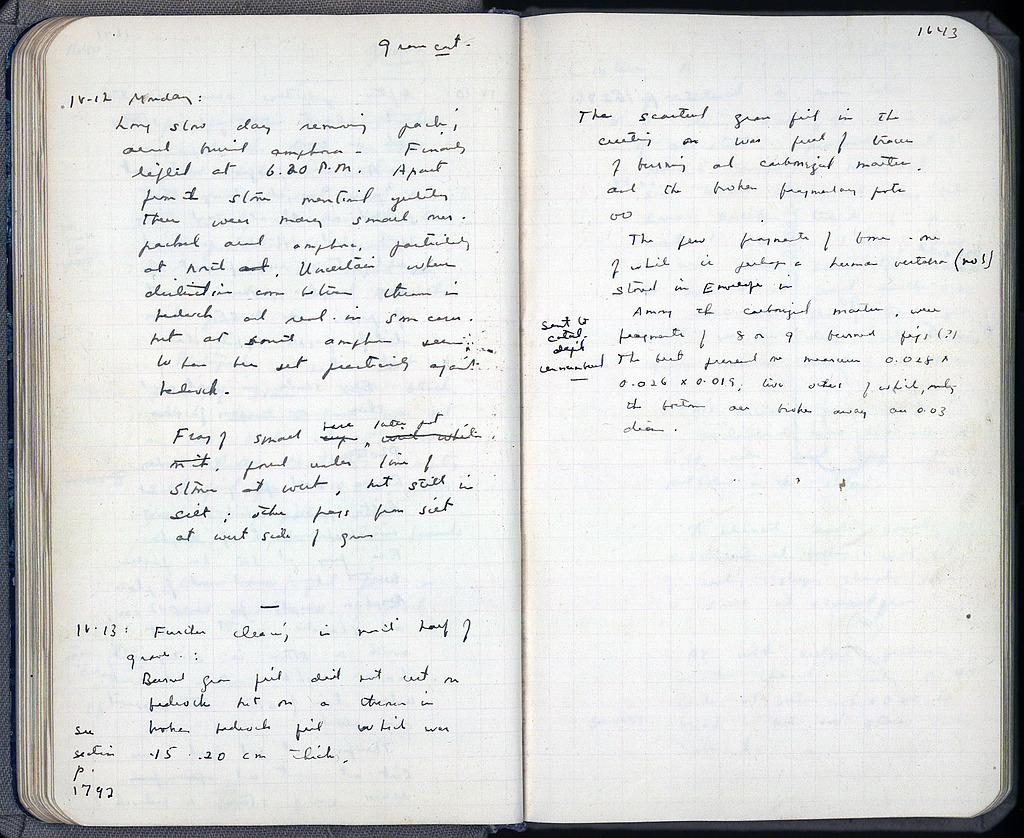 Grave cont.
IV-12 Monday:
Long slow day removing packing
and burial amphora. Finally
lifted at 6.20 P.M. Apart
from the stones mentioned yesterday
there were many small ones.
packed around amphora, particularly
at north. Uncertain where
distinction between in
bedrock and real in some cases.
but at south amphora seems
to have been set practically against
bedrock.
Frag of small
found under line of
stones at west, but still in
silt; other frags from silt
at west side of grave
IV-13: Further cleaning in north half of
grave.:
Burned grave fill did not rest on
bedrock but on a in
broken bedrock fill which was
.15 - .20 cm thick.
see
section
p.
1792
1643
The scattered grave fill in the
cutting was full of traces
of burning and carbonized matter.
and the broken fragmentary pots
The few fragments of bone - one
of which is perhaps a human vertebra (no!)
stored in Envelope in
Among the carbonized matter, were
fragments of 8 or 9 burned figs (?)
sent to
catal.
dep't
The best preserved measures 0.028 x
0.026 x 0.019; two others of which only
the bottom are broken away are 0.03
diam.